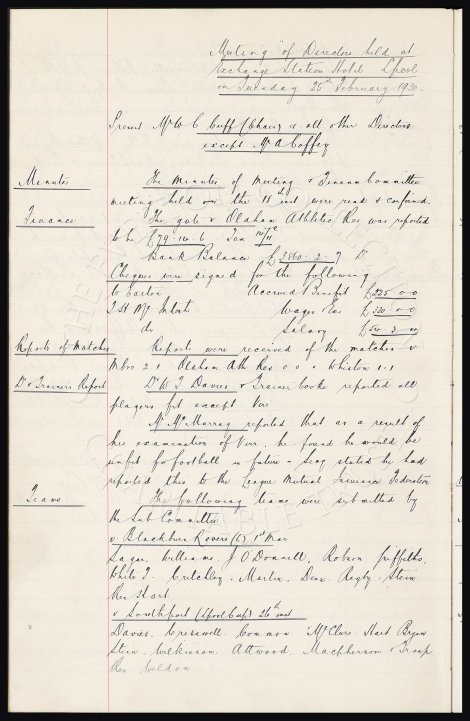 Meeting of Directors held at
Exchange Station Hotel L'pool
on Tuesday 25th February 1930.
Present Mr W C Cuff (Chair) & all other Directors
except Mr A Coffey
Minutes
The Minutes of Meeting & Finance Committee
meeting held on the 18th inst were read & confirmed.
Finance
The gate v Oldham Athletic Res was reported
to be £79-14-6
Bank Balance £3860-2-7 Dr
Cheques were signed for the following
Accrued Benefit £325-0-0
Wages £320-0-0
do Salary
Reports of Matches
Reports were received of the matches v
2.1 Oldham Ath Res 0.0 & Whiston 1.1
Dr & Trainer's Report
Dr W J Davies & Trainer Cooke reported all
players fit except Kerr.
Mr McMurray reported that as a result of
his examination of Kerr, he found he would be
unfit for football in future & Secy stated he had
reported this to the League Mutual Insurance Federation
Teams
The following teams were submitted by
the Sub Committee
v Blackburn Rovers (L) 1st Mar
Sagar. Williams J O'Donnell. Robson Griffiths.
White T. Critchley. Martin. Dean Rigby. Stein
Res Hart
v Southport (Lpool Cup) 26th inst
Davies. Cresswell Common. McClure. Hart Bryan
Stein. Wilkinson. Attwood. Macpherson & Troup
Res Weldon